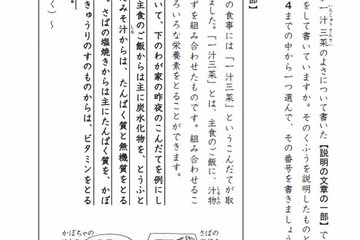 一汁三菜のよさについて書いた【説明の文章の一部】で
をして書いていますか。そのくふうを説明したものと
4までの中から一つ選んで、その番号を書きましょう
部】
の食事には「一汁三菜」というこんだてが取
ました。「一汁三菜」とは、主食のご飯に、汁物
ずを組み合わせたものです。組み合わせるこ
ろいろな栄養素をとることができます。
いて、下のわが家の昨夜のこんだてを例にし
主食のご飯からは主に炭水化物を、とうふと
みそ汁からは、たんぱく質と無機質をとる
さばの塩焼きからは主にたんぱく質を、かぼ
きゅうりのすのものからは、ビタミンをとる
す。
く）～
さばの
かぼちゃの